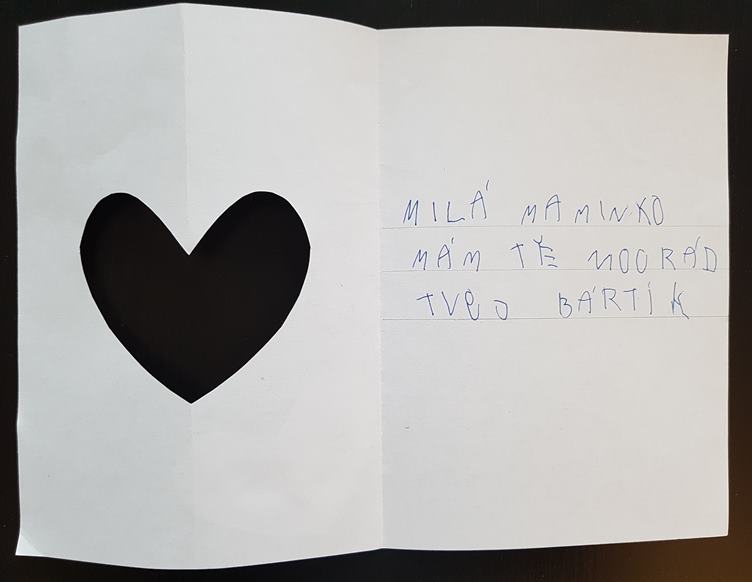 MILÁ MAMINKO
MÁM TĚ MOORÁD
TVŮJ BÁRTÍK